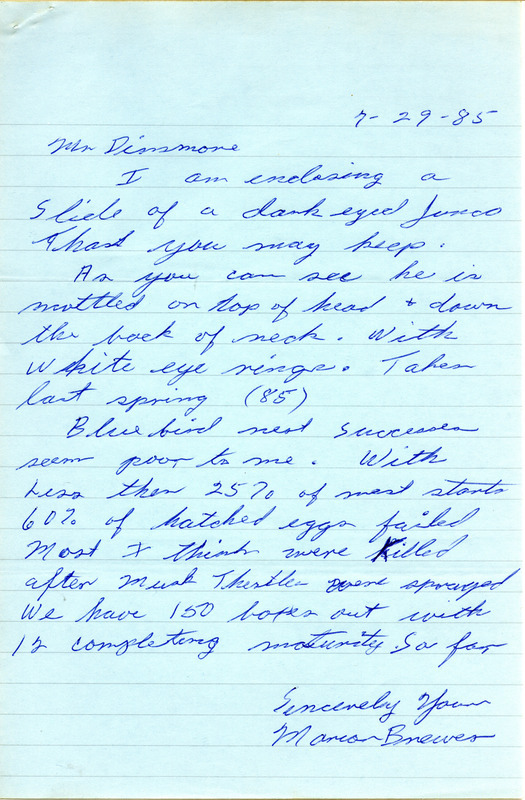 7-29-85
Mr Dinsmore
I am enclosing a
Slide of a dark eyed Junco
That you may keep.
As you can see he is
mottled on top of head + down
the back of neck. With
White eye rings. Taken
last spring (85)
Blue bird nest successes
seem poor to me. With
Less then 25% of nest starts
60% of hatched eggs failed
Most I think were Killed
after Musk Thistles were sprayed
We have 150 boxes out with
12 completing maturity. So far
Sincerely Your
Marion Brewer